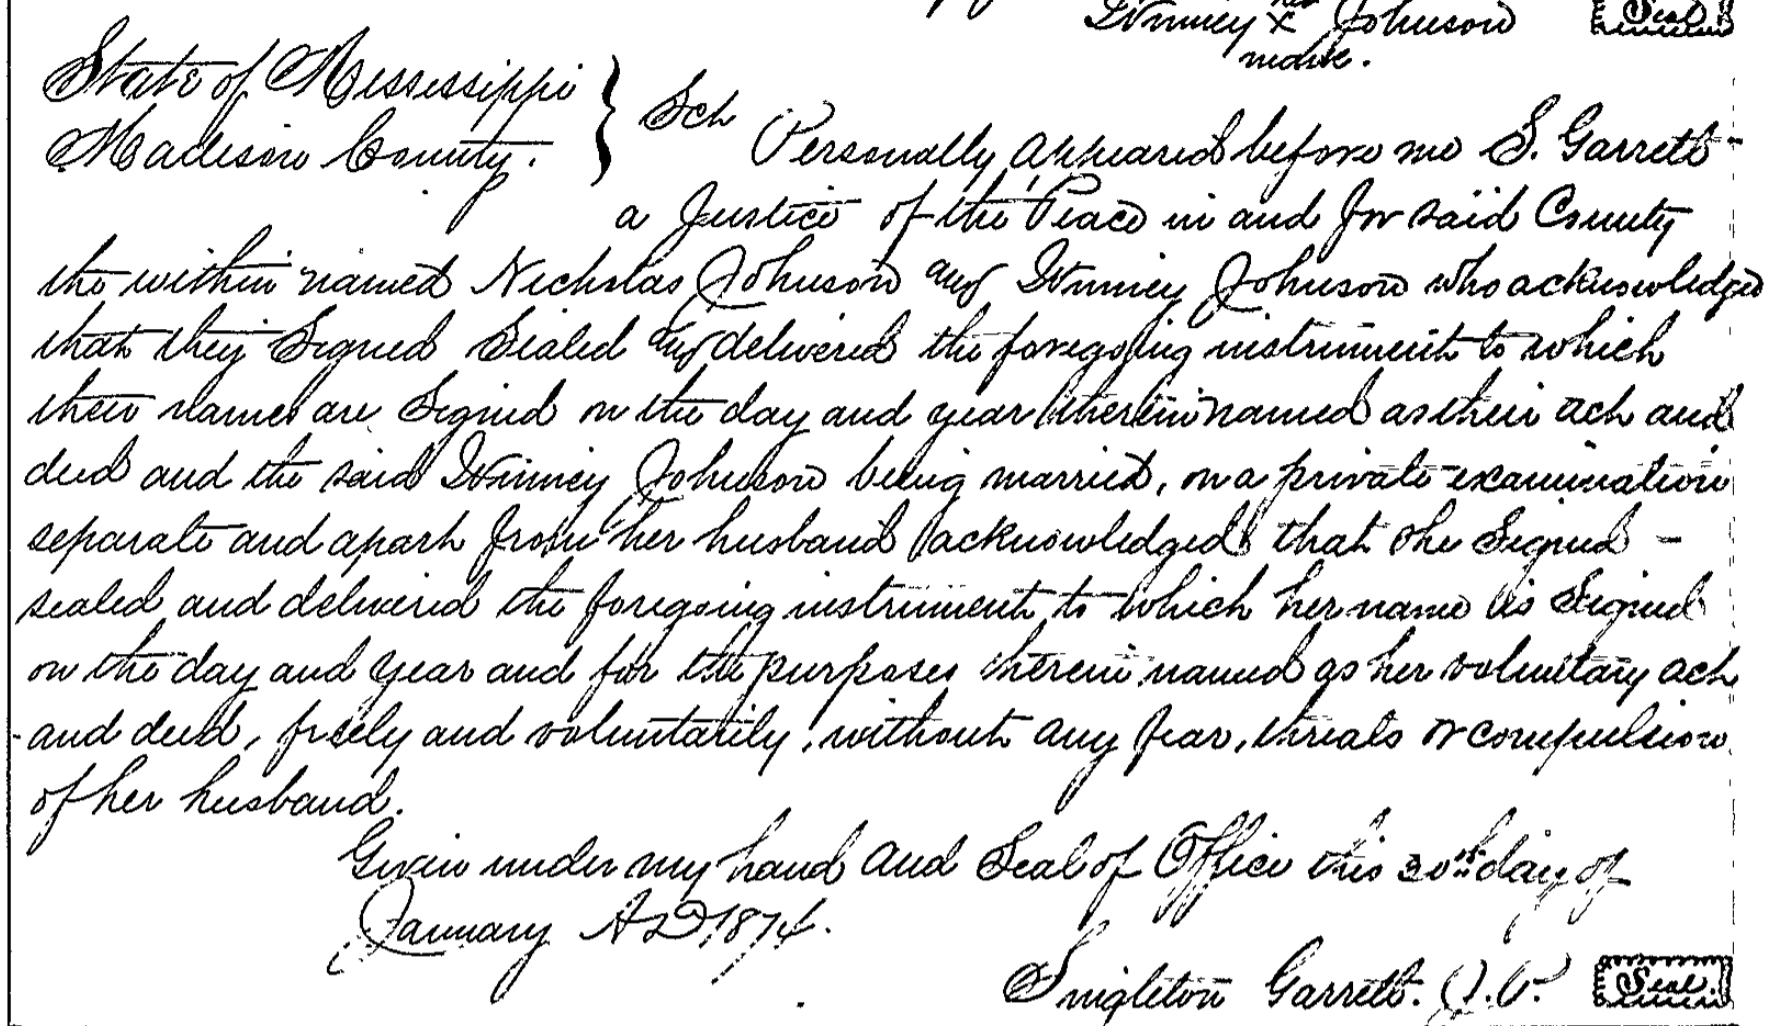 her
Winney x Johnson Seal
mark.
State of Mississippi }
Madison County. } Sct Personally appeared before me S. Garrett -
a Justice of the Peace in and for said County
the within named Nicholas Johnson and Winney Johnson who acknowledged
that they Signed Sealed and delivered the foregoing instrument to which
their names are Signed on the day and year therein named as their act and
deed and the said Winney Johnson being married, on a private examination
separate and apart from her husband acknowledged that she Signed -
sealed and delivered the foregoing instrument to which her name is Signed
on the day and year and for the purposes therein named as her voluntary act
and deed, freely and voluntarily, without any fear, threats or compulsion
of her husband.
Given under my hand and Seal of Office this 30th day of
January A D 1874.
Singleton Garrett. J.P. Seal